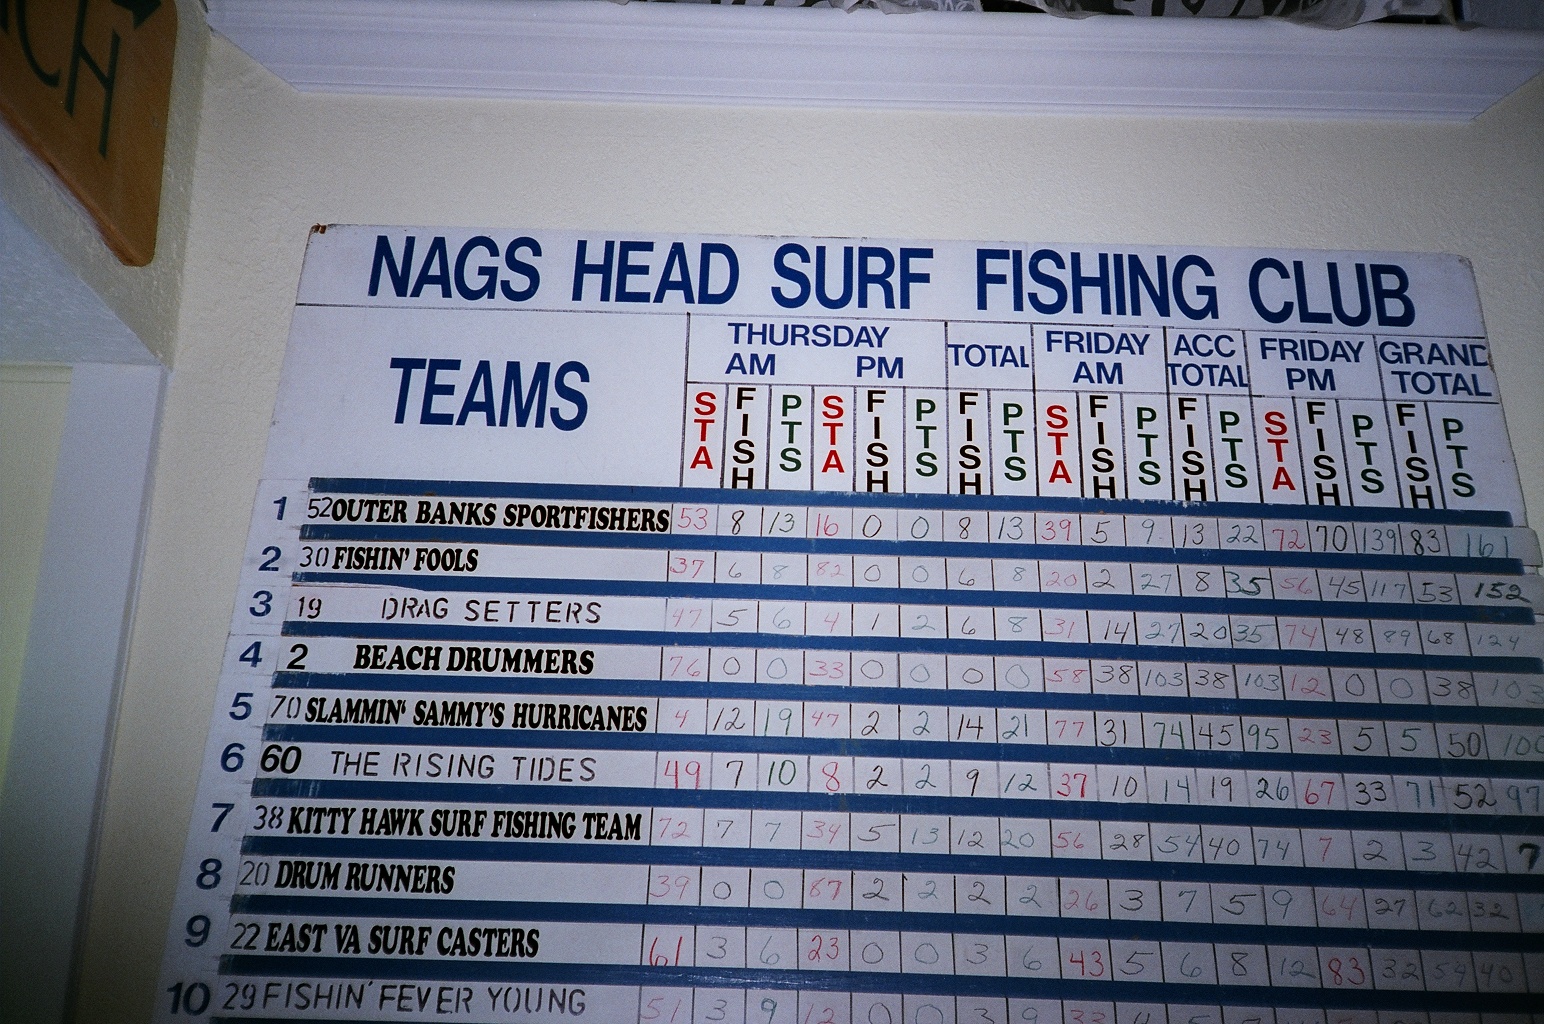 CH
NAGS HEAD SURF FISHING CLUB
TEAMS THURSDAY AM PM TOTAL FRIDAY AM ACC TOTAL FRIDAY PM GRAND TOTAL
STA FISH PTS STA FISH PTS FISH PTS STA FISH PTS FISH PTS STA FISH PTS FISH PTS
1 52 OUTER BANKS SPORTFISHERS 53 8 13 16 0 0 8 13 39 5 9 13 22 72 70 139 83 161
2 30 FISHIN' FOOLS 37 6 8 82 0 0 6 8 20 2 27 8 35 56 45 117 53 152
3 19 DRAG SETTERS 47 5 6 4 1 2 6 8 31 14 27 20 35 74 48 89 68 124
4 2 BEACH DRUMMERS 76 0 0 33 0 0 0 0 58 38 103 38 103 12 0 0 38 103
5 70 SLAMMIN' SAMMY'S HURRICANES 4 12 19 47 2 2 14 21 77 31 74 45 95 23 5 5 50 100
6 60 THE RISING TIDES 49 7 10 8 2 2 9 12 37 10 14 19 26 67 33 71 52 97
7 38 KITTY HAWK SURF FISHING TEAM 72 7 7 34 5 13 12 20 56 28 54 40 74 7 2 3 42 7
8 20 DRUM RUNNERS 39 0 0 67 2 2 2 2 26 3 7 5 9 64 27 62 32
9 22 EAST VA SURF CASTERS 61 3 6 23 0 0 3 6 43 5 6 8 12 83 32 59 40
10 29 FISHIN' FEVER YOUNG 51 3 9 12 0 0 3 9 33